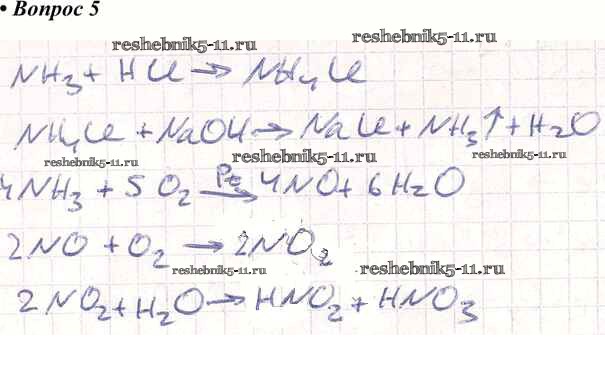 • Вопрос 5
reshebnik5-11.ru
reshebnik5-11.ru
NH3 + HCl → NH4Cl
NH4Cl + NaOH → NaCl + NH3↑ + H2O
reshebnik5-11.ru
reshebnik5-11.ru
4NH3 + 5O2 Pt→ 4NO + 6H2O
2NO + O2 → 2NO2
reshebnik5-11.ru
reshebnik5-11.ru
2NO2 + H2O → HNO2 + HNO3